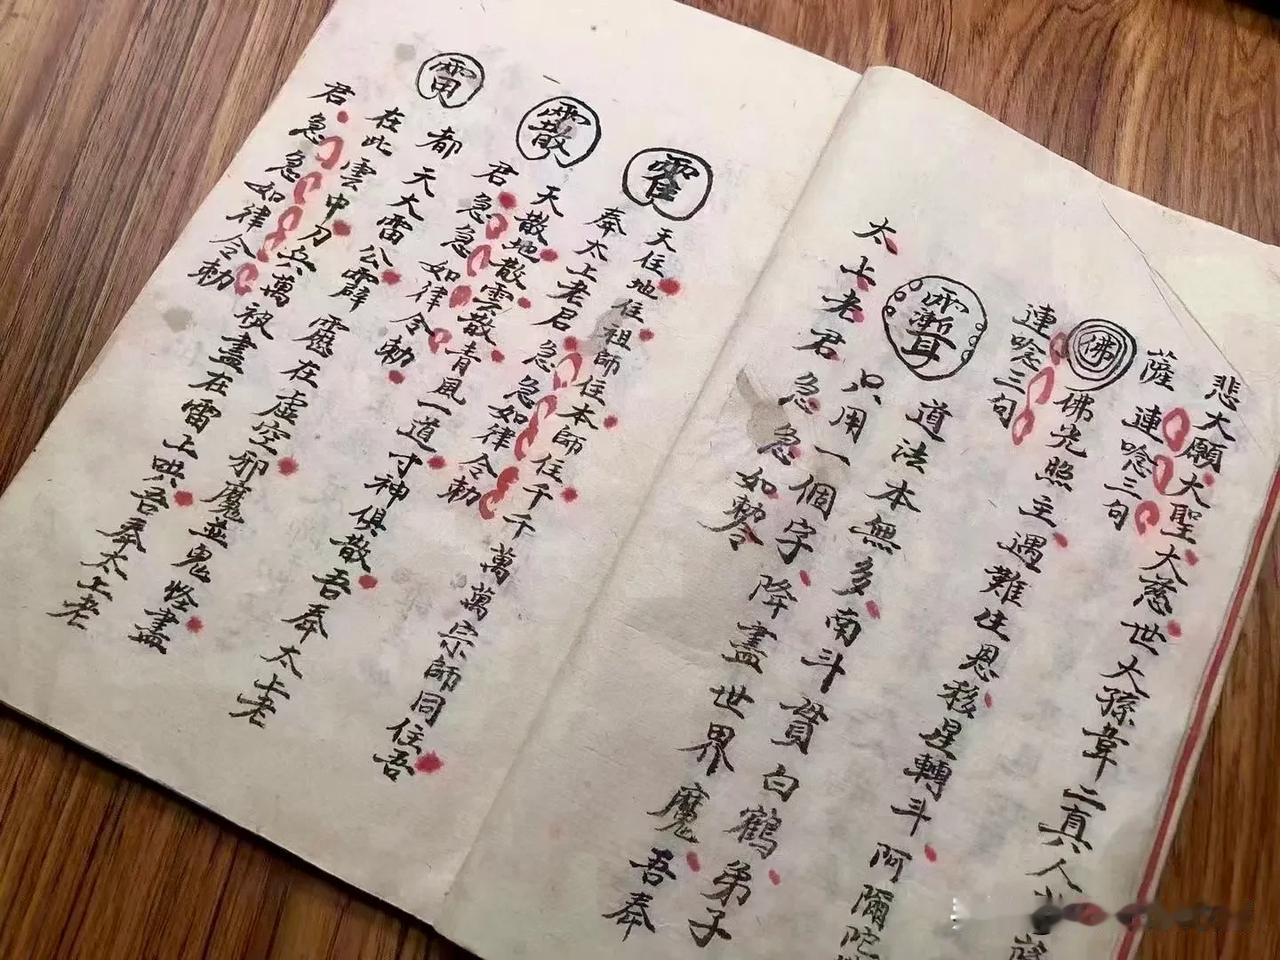 悲大願大聖大慈世大孫韋二真人
薩連唸三句
佛 佛光照主遇難住恩移星轉斗阿彌陀
連唸三句
道法本無多南斗貫白鶴弟子
只用一個字降盡世界魔吾奉
太上老君急急如
天住地住祖師住本師住千千萬萬宗師同住吾
奉太上老君急急如律令勅
天散地散雲散青風一道寸神俱散吾奉太上老
君急急如律令勅
雷 都天大雷公霹靂在虛空邪魔並鬼怪盡
在此雲中刀兵萬被盡在雷上哄吾奉太上老
君急急如律令勅